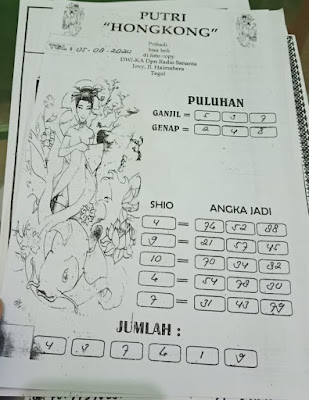 PUTRI
"HONGKONG"
TGL : 05-09-2020
Pribadi
bisa beli
di foto copy
DWI-KA Dpn Radio Sananta
Jovy, Jl. Halmahera
Tegal
PULUHAN
GANJIL = 5 3 7
GENAP = 2 4 8
SHIO ANGKA JADI
4 = 74 52 88
9 = 21 57 45
10 = 70 34 82
4 = 54 78 30
7 = 31 43 79
JUMLAH :
4 8 7 6 1 9